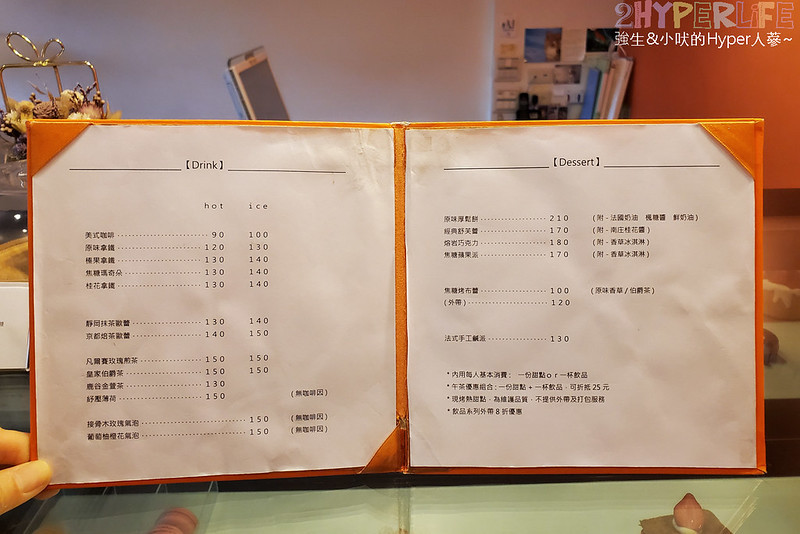 2HYPERLIFE
強生&小吠的Hyper人蔘~
【Drink】
hot ice
美式咖啡 90 100
原味拿鐵 120 130
榛果拿鐵 130 140
焦糖瑪奇朵 130 140
桂花拿鐵 130 140
靜岡抹茶歐蕾 130 140
京都焙茶歐蕾 140 150
凡爾賽玫瑰煎茶 150 150
皇家伯爵茶 150 150
鹿谷金萱茶 130
紓壓薄荷 150 (無咖啡因)
接骨木玫瑰氣泡 150 (無咖啡因)
葡萄柚橙花氣泡 150 (無咖啡因)
【Dessert】
原味厚鬆餅 210 (附 - 法國奶油 楓糖醬 鮮奶油)
經典舒芙蕾 170 (附 - 南庄桂花醬)
熔岩巧克力 180 (附 - 香草冰淇淋)
焦糖蘋果派 170 (附 - 香草冰淇淋)
焦糖烤布蕾 100 (原味香草/伯爵茶)
(外帶) 120
法式手工鹹派 130
*內用每人基本消費: 一份甜點or一杯飲品
*午茶優惠組合:一份甜點+一杯飲品,可折抵25元
*現烤熱甜點,為維護品質,不提供外帶及打包服務
*飲品系列外帶8折優惠